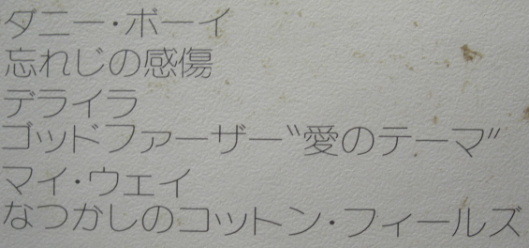 ダニー・ボーイ
忘れじの感傷
デライラ
ゴッドファーザー〝愛のテーマ〟
マイ・ウェイ
なつかしのコットン・フィールズ